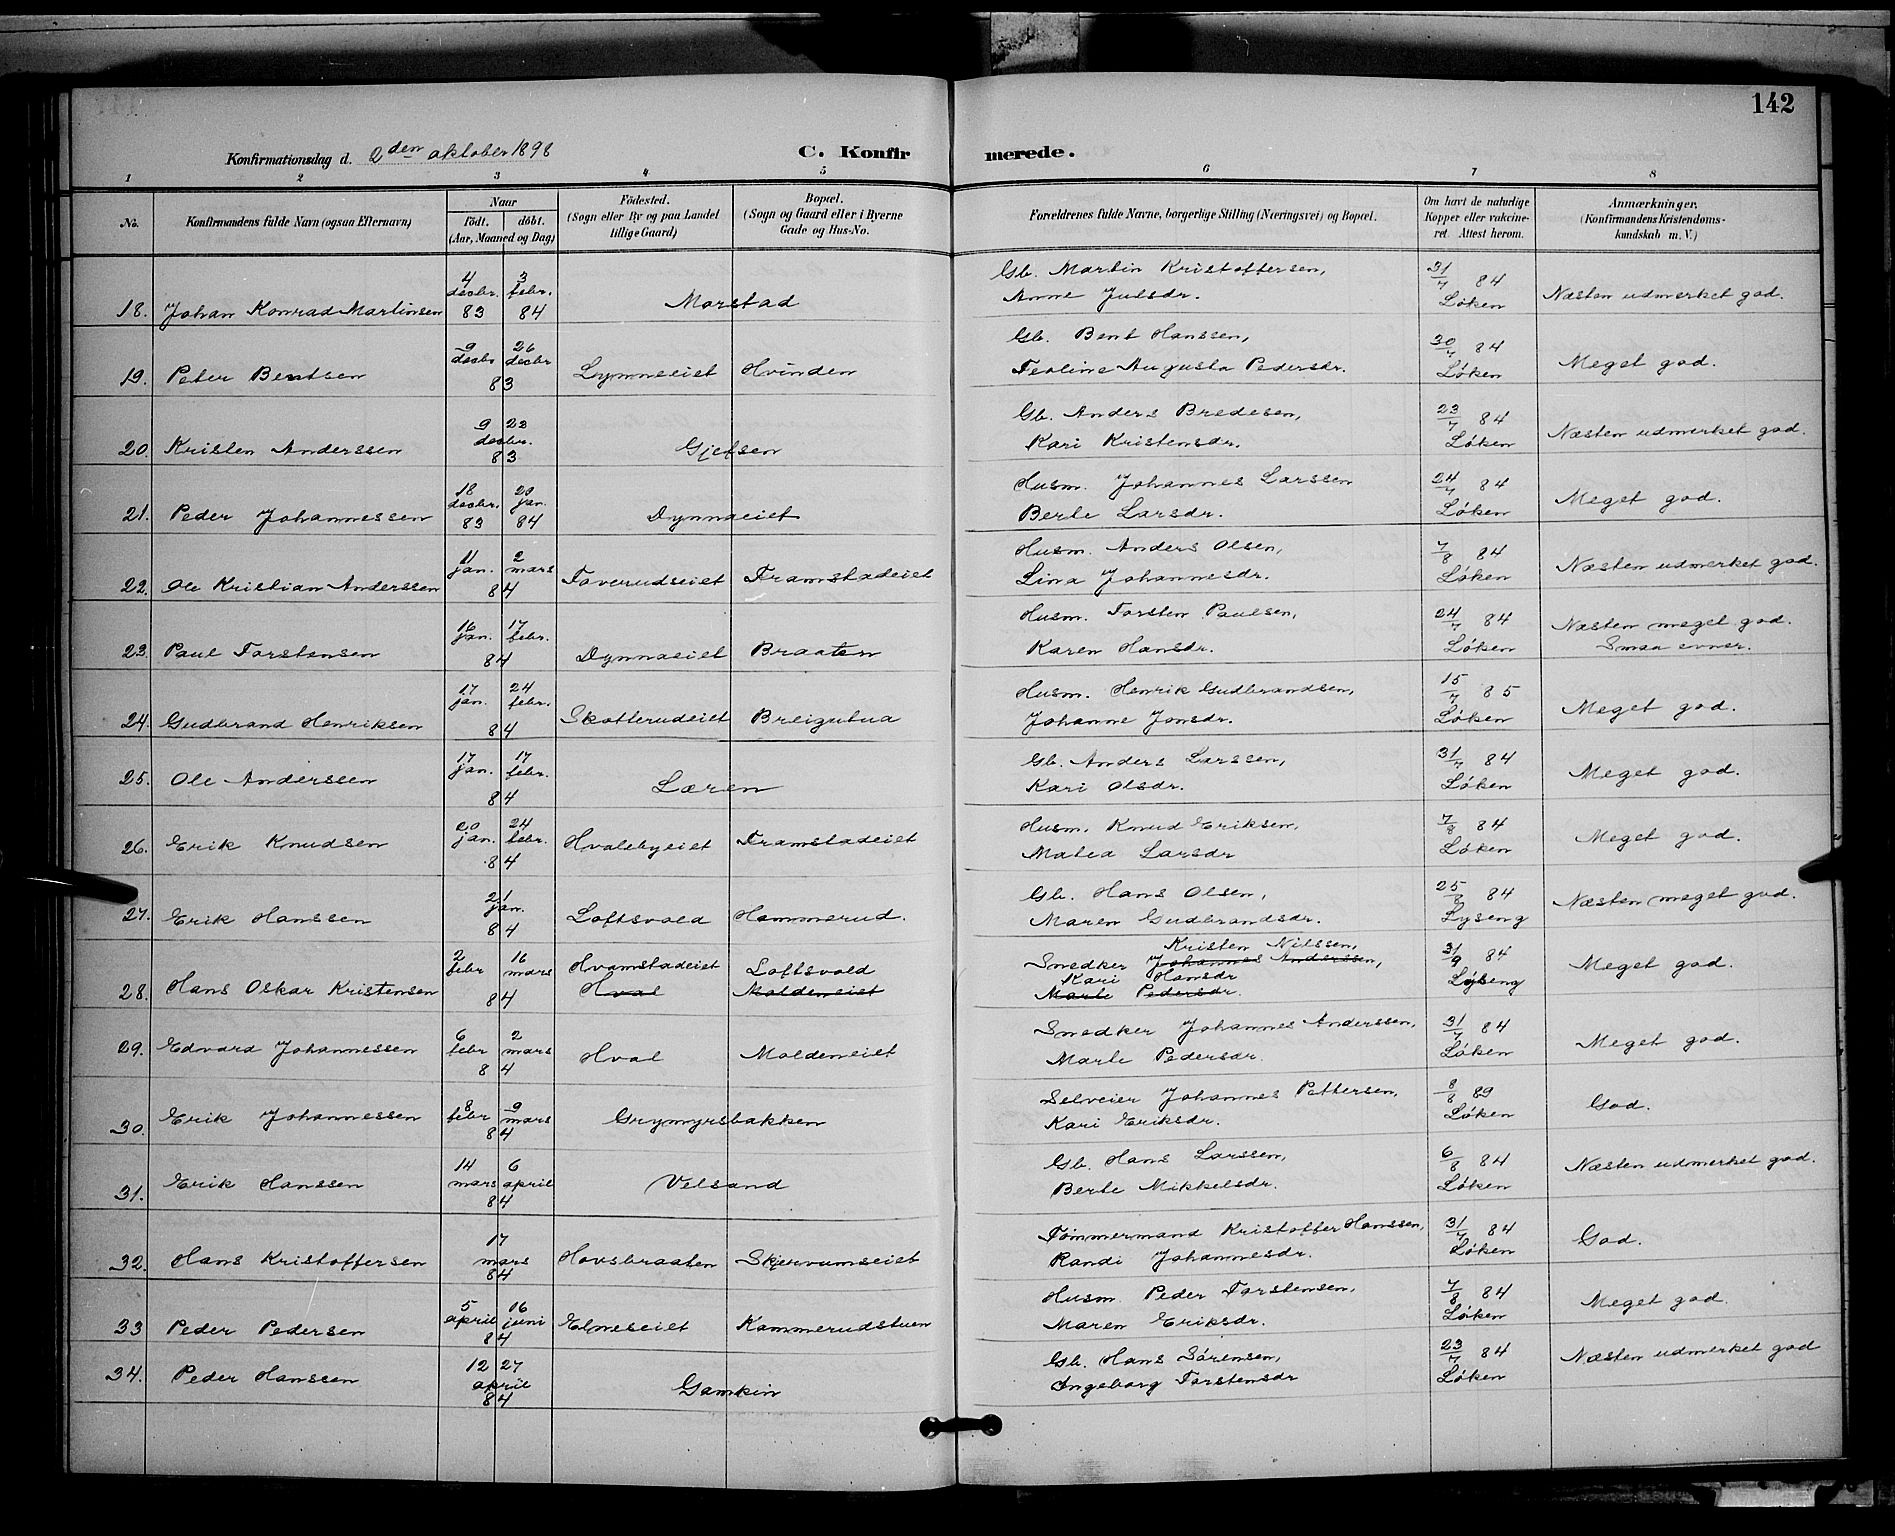 142
Konfirmationsdag d. 2den oktober 1898 C. Konfirmerede.
1 2 3 4 5 6 7 8
No. Konfirmandens fulde Navn (ogsaa Efternavn) Naar Födt. döbt. (Aar, Maaned og Dag) Födested. (Sogn eller By og paa Landet tillige Gaard) Bopæl. (Sogn og Gaard eller i Byerne Gade og Hus-No. Forældrenes fulde Navne, borgerlige Stilling (Næringsvei) og Bopæl. Om havt de naturlige Kopper eller vakcineret. Attest herom. Anmærkninger. (Konfirmandens Kristendomskundskab m. V.)
18. Johan Konrad Martinsen 4 decbr. 83 3 febr. 84 Morstad Gb. Martin Kristoffersen, Anne Julsdr. 31/7 84 Løken Næsten udmerket god.
19. Peter Bentsen 9 decbr 26 decbr 83 Lynneeiet Hvinden Gb. Bent Hanssen, Teoline Augusta Pedersdr. 30/7 84 Løken Meget god.
20. Kristen Anderssen 9 23 decbr. 83 Gjefsen Gb. Anders Bredesen, Kari Kristensdr. 23/7 84 Løken Næsten udmerket god.
21. Peder Johannessen 18 decbr. 83 20 jan. 84 Dynnaeiet Husm. Johannes Larssen Berte Larsdr. 24/7 84 Løken Meget god.
22. Ole Kristian Anderssen 11 jan. 2 mars 84 Toverudseiet Framstadeiet Husm. Anders Olsen, Lina Johannesdr. 7/8 84 Løken Næsten udmerket god.
23. Paul Torstensen 16 jan. 17 febr. 84 Dynnaeiet Braaten Husm. Torsten Paulsen, Karen Hansdr. 24/7 84 Løken Næsten meget god. Smaa evner.
24. Gudbrand Henriksen 17 jan. 24 febr. 84 Skotterudeiet Breigutua Husm. Henrik Gudbrandsen, Johanne Jonsdr. 15/7 85 Løken Meget god.
25. Ole Anderssen 17 jan. 17 febr. 84 Læren Gb. Anders Larssen, Kari Olsdr. 31/7 84 Løken Meget god.
26. Erik Knudsen 20 jan. 24 febr. 84 Hvalebyeiet Framstadeiet Husm. Knud Eriksen, Matea Larsdr 7/8 84 Løken Meget god.
27. Erik Hanssen 21 jan. 84 Loftsvold Hammerud. Gb. Hans Olsen, Maren Gudbrandsdr. 25/8 84 Lyseng Næsten meget god.
28. Hans Oskar Kristensen 2 febr 16 mars 84 Hvamstadeiet Hval Loftsvold Moldeneiet Snedker Kristen Nilssen, Johannes Anderssen, Kari Hansdr Marte Pedersdr. 31/9 84 Lyseng Meget god.
29. Edvard Johannessen 6 febr 2 mars 84 Hval Moldeneiet Snedker Johannes Anderssen, Marte Pedersdr. 31/7 84 Løken Meget god.
30. Erik Johannessen 8 febr 9 mars 84 Grymyrsbakken Selveier Johannes Pettersen, Kari Eriksdr. 8/8 89 Løken God.
31. Erik Hanssen 14 mars 6 april 84 Velsand Gb. Hans Larssen, Berte Mikkelsdr. 6/8 84 Løken Næsten udmerket god.
32. Hans Kristoffersen 17 mars 84 Hovsbraaten Skjervumseiet Tømmermand Kristoffer Hanssen, Randi Johannesdr. 31/7 84 Løken God.
33 Peder Pedersen 5 april 16 juni 84 Elneseiet Kammerudstuen Husm. Peder Torstensen, Maren Eriksdr. 7/8 84 Løken Meget god.
34. Peder Hanssen 12 27 april 84 Gamkin Gb. Hans Sørensen, Ingeborg Torstensdr 23/7 84 Løken Næsten udmerket god